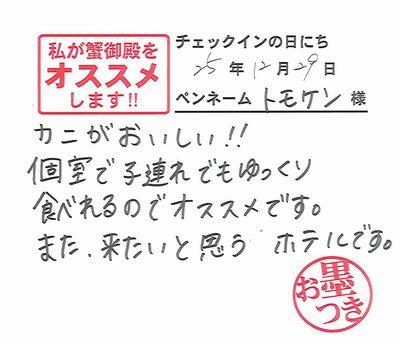 私が蟹御殿を
オススメ
します!!
チェックインの日にち
25年12月29日
ペンネーム トモケン 様
カニがおいしい!!
個室で子連れでもゆっくり
食べれるのでオススメです。
また、来たいと思う ホテルです。
お墨つき